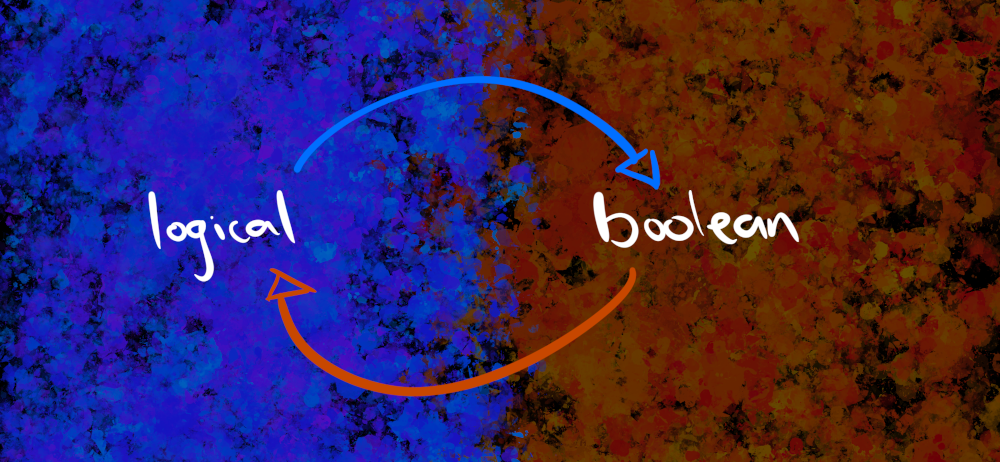 logical
boolean